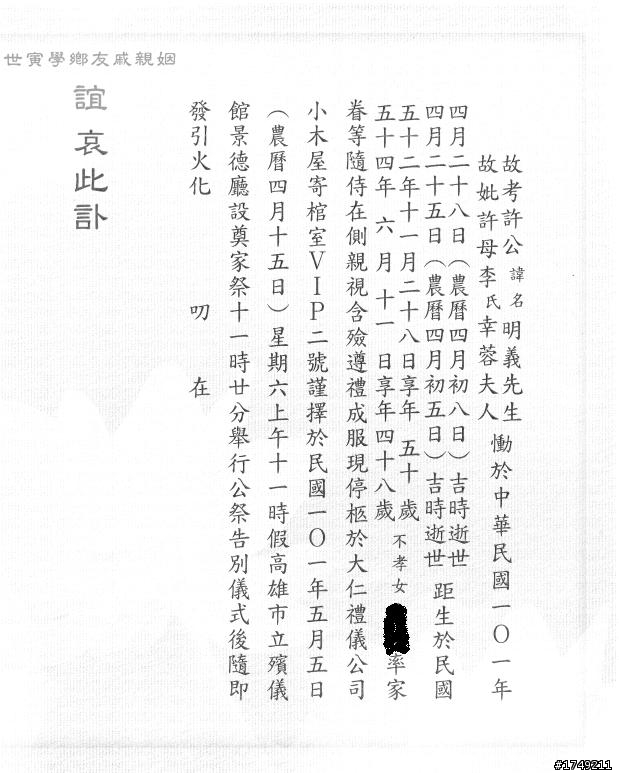 故考許公諱名明義先生
故妣許母李氏幸蓉夫人
慟於中華民國一O一年
四月二十八日（農曆四月初八日）吉時逝世
四月二十五日（農曆四月初五日）吉時逝世
距生於民國
五十二年十一月二十八日享年五十歲
五十四年六月十一日享年四十八歲
不孝女率家
眷等隨侍在側親視含殮遵禮成服現停柩於大仁禮儀公司
小木屋寄棺室VIP二號謹擇於民國一O一年五月五日
（農曆四月十五日）星期六上午十一時假高雄市立殯儀
館景德廳設奠家祭十一時廿分舉行公祭告別儀式後隨即
發引火化 叨在
姻親戚友鄉學寅世
誼哀此訃
#1749211